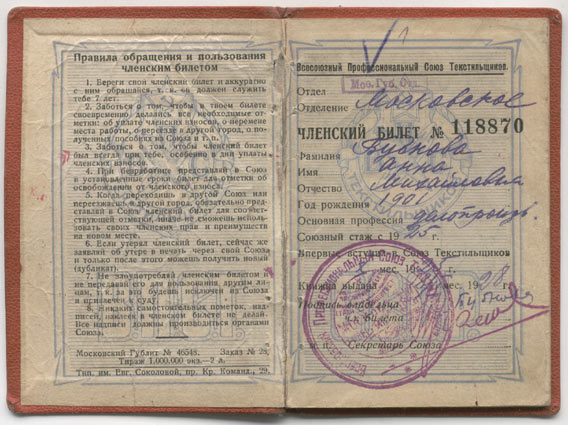 Правила обращения и пользования
членским билетом
1. Береги свой членский билет и аккуратно
с ним обращайся, т. к. он должен служить
тебе 7 лет.
2. Заботься о том, чтобы в твоем билете
своевременно делались все необходимые от-
метки: об уплате членских взносов, о перемене
места работы, о переезде в другой город, о по-
лученных пособиях из Союза и т. п.
3. Заботься о том, чтобы членский билет
был всегда при тебе, особенно для уплаты
членских взносов.
4. При безработице представляй в Союз
в установленные сроки билет для отметки об
освобождении от членского взноса.
5. Когда переходишь в другой Союз или
переезжаешь в другой город, обязательно предста-
вляй в Союз членский билет для соответ-
ствующей отметки, иначе не сможешь использо-
вать своих членских прав и преимуществ
на новом месте.
6. Если утерял членский билет, сейчас же
заявляй об утере в печать через свой Союз
и только после этого можешь получить новый
(дубликат).
7. Не злоупотребляй членским билетом и
не передавай его для пользования другим ли-
цам, т. к. за это будешь исключен из Союза
и привлечен к суду.
8. Никаких самостоятельных пометок, над-
писей, наклеек в членском билете не делай.
Все надписи должны производиться органами
Союза.
Московский Рублит № 46548. Заказ № 28.
Тираж 1.000.000 экз.—2 л.
Тип. им. Евг. Соколовой, пр. Кр. Команд., 29.
Всесоюзный Профессиональный Союз Текстильщиков.
Мос. Губ. Отд.
Отдел
Отделение Московское
ЧЛЕНСКИЙ БИЛЕТ № 118870
Фамилия
Имя Анна
Отчество Михайловна
Год рождения 1901
Основная профессия
Союзный стаж с 1925 г.
Впервые вступил в Союз Текстильщиков
мес. г.
Книжка выдана мес. 1928
Подпись владельца
чл. билета
м. п. Секретарь Союза